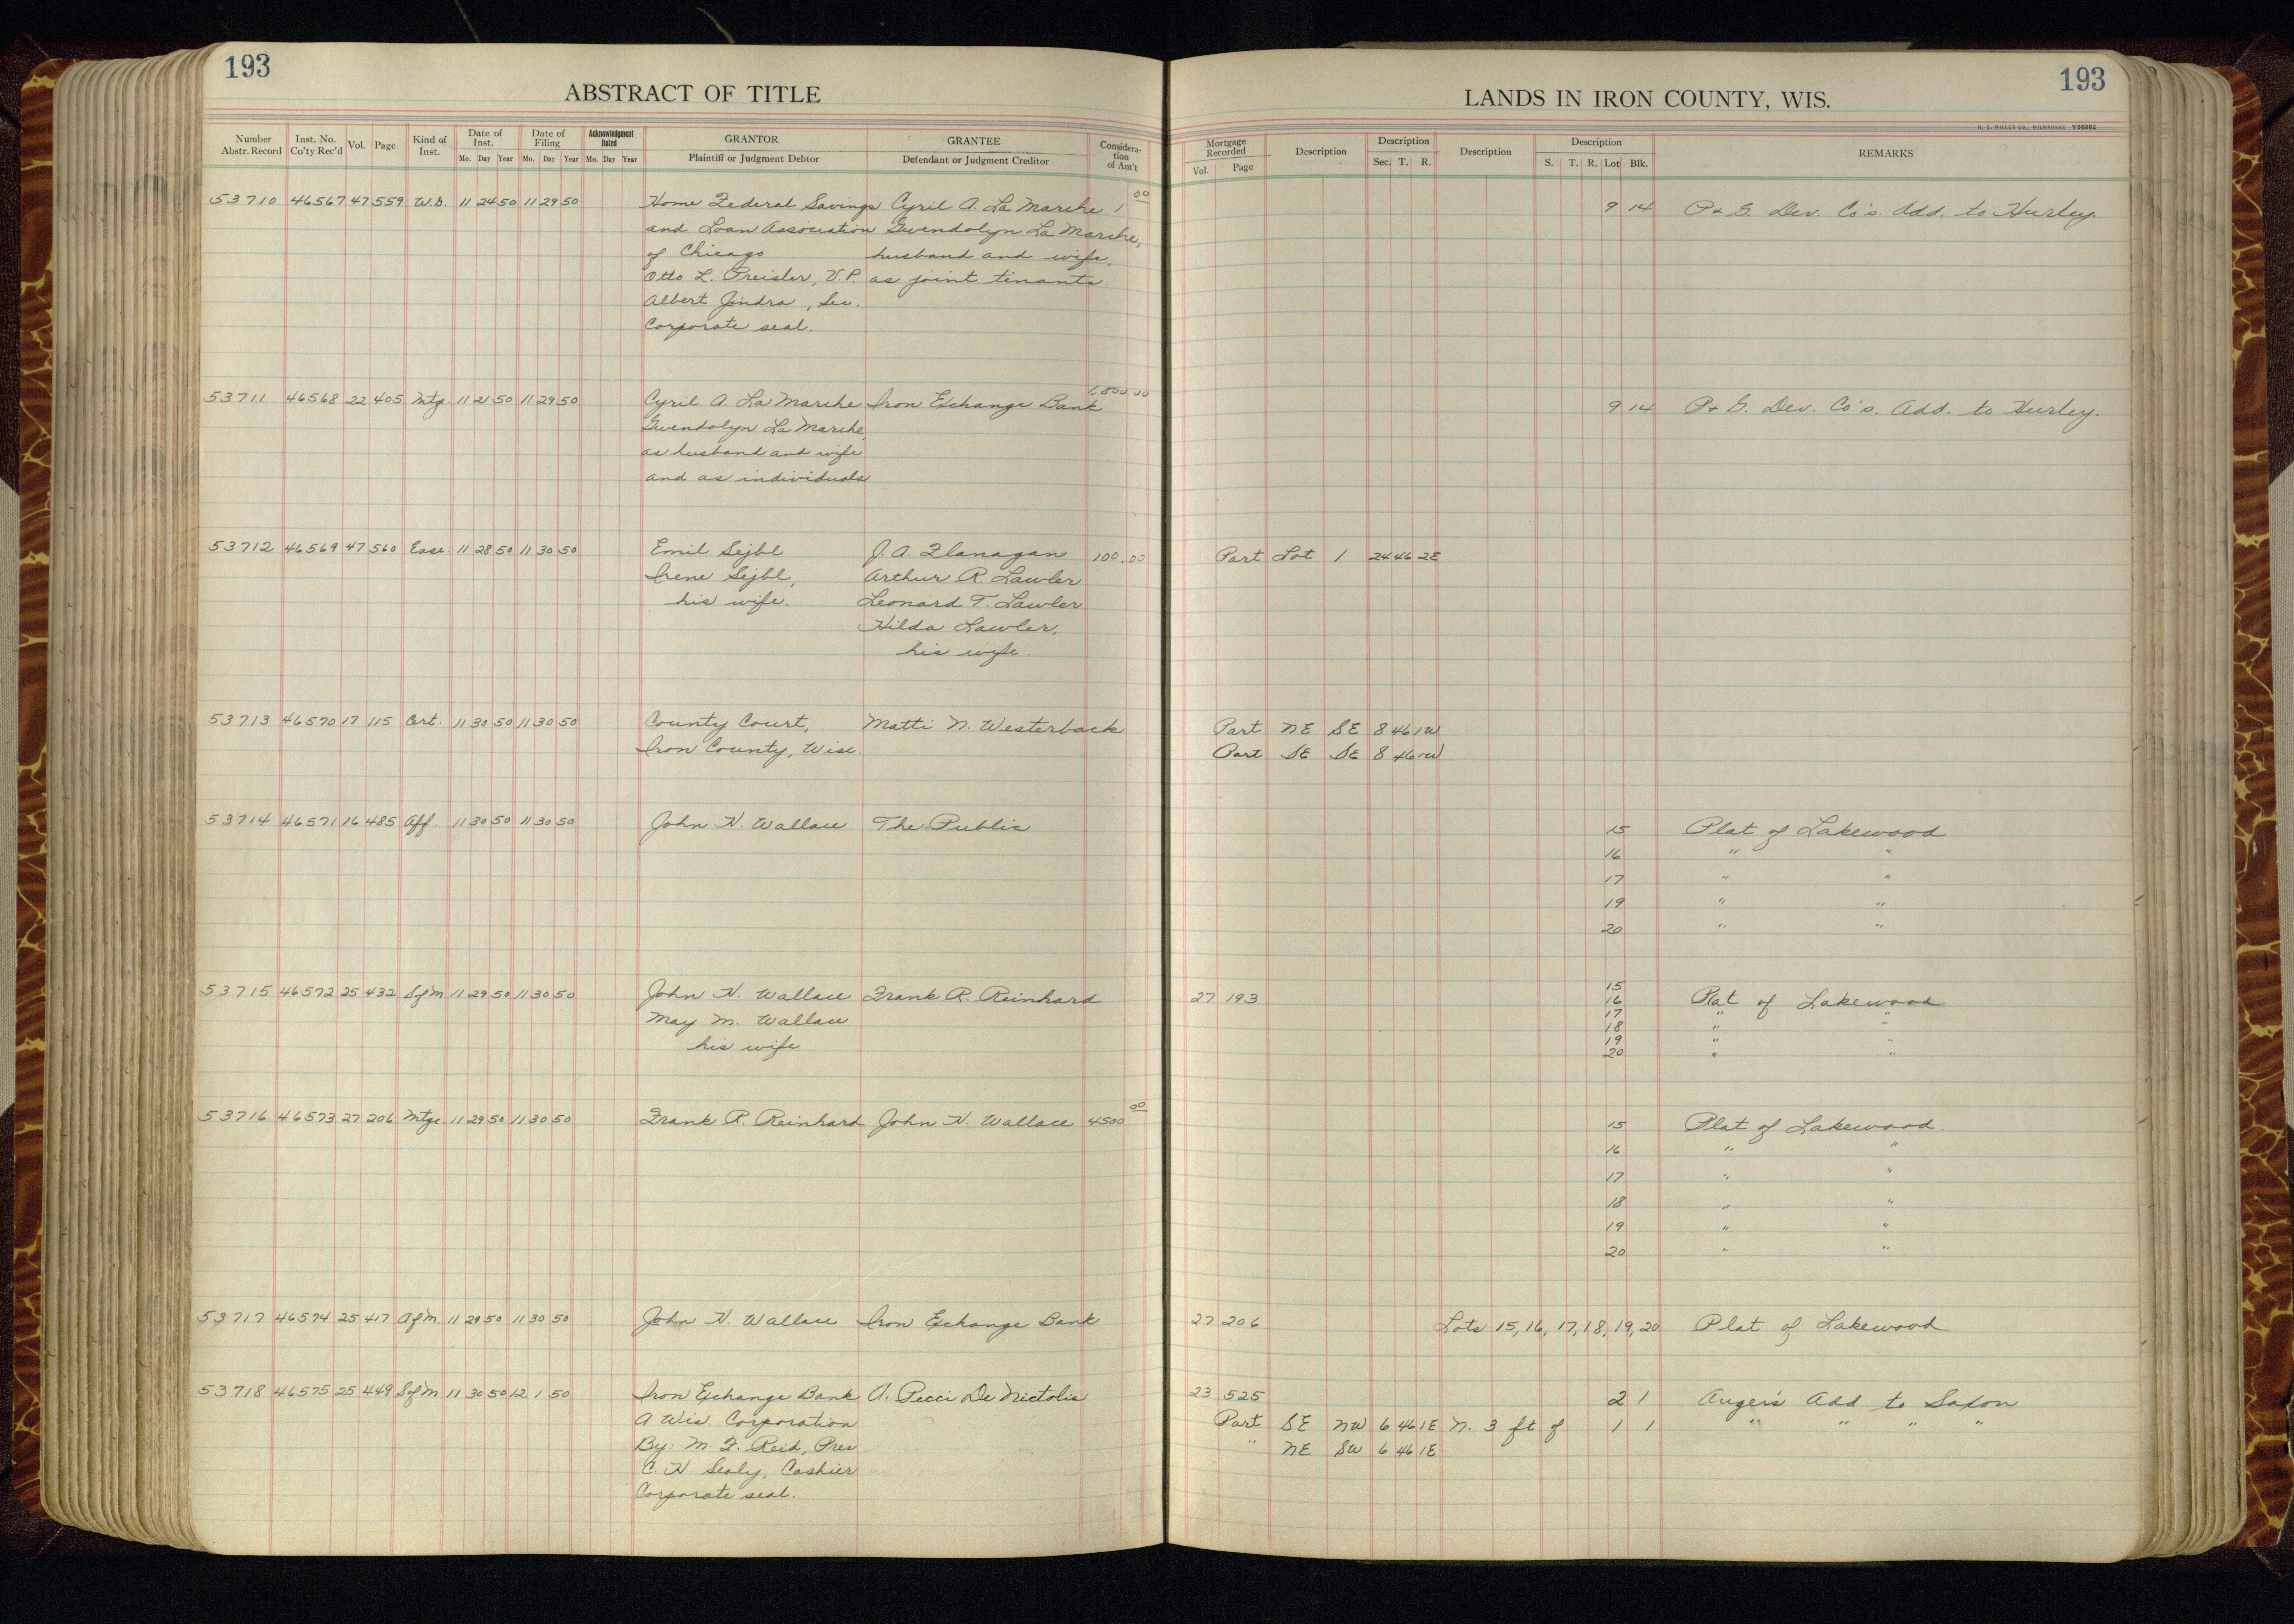 193
ABSTRACT OF TITLE
Number Abstr. Record
Inst. No. Co'ty Rec'd
Vol.
Page
Kind of Inst.
Date of Inst.
Mo. Day Year
Date of Filing
Mo. Day Year
Acknowledgment Dated
Mo. Day Year
GRANTOR
Plaintiff or Judgment Debtor
GRANTEE
Defendant or Judgment Creditor
Considera-
tion
of Am't
53710 46567 47 559 W.D. 11 24 50 11 29 50 Home Federal Savings Cyril A. La Marche 1 00
and Loan Association Gwendolyn La Marche,
of Chicago husband and wife,
Otto L. Preisler, V.P. as joint tenants.
Albert Jindra, Sec.
Corporate seal.
53711 46568 22 405 Mtg. 11 21 50 11 29 50 Cyril A. La Marche Iron Exchange Bank 1,800.00
Gwendolyn La Marche,
as husband and wife
and as individuals
53712 46569 47 560 Ease. 11 28 50 11 30 50 Emil Sejbl J. A. Flanagan 100.00
Irene Sejbl, Arthur R. Lawler
his wife. Leonard T. Lawler
Hilda Lawler,
his wife.
53713 46570 17 115 Cert. 11 30 50 11 30 50 County Court, Matti N. Westerback
Iron County, Wisc.
53714 46571 16 485 Aff. 11 30 50 11 30 50 John H. Wallace The Public
53715 46572 25 432 SofM 11 29 50 11 30 50 John H. Wallace Frank R. Reinhard
May M. Wallace
his wife
53716 46573 27 206 Mtge 11 29 50 11 30 50 Frank R. Reinhard John H. Wallace 4500 00
53717 46574 25 417 AofM. 11 29 50 11 30 50 John H. Wallace Iron Exchange Bank
53718 46575 25 449 SofM 11 30 50 12 1 50 Iron Exchange Bank A. Pecci De Nictolis
A Wis. Corporation
By: M. F. Reid, Pres
C. H. Sealy, Cashier
Corporate seal.
193
LANDS IN IRON COUNTY, WIS.
H. C. MILLER CO., MILWAUKEE Y56982
Mortgage Recorded
Vol. Page
Description
Description
Sec. T. R.
Description
Description
S. T. R. Lot Blk.
REMARKS
9 14 P & G. Dev. Co's. Add. to Hurley.
9 14 P & G. Dev. Co's. Add. to Hurley.
Part Lot 1 24 46 2E
Part NE SE 8 46 1W
Part SE SE 8 46 1W
15 Plat of Lakewood
16 " "
17 " "
19 " "
20 " "
27 193
15
16 Plat of Lakewood
17 " "
18 " "
19 " "
20 " "
15 Plat of Lakewood.
16 " "
17 " "
18 " "
19 " "
20 " "
27 206 Lots 15, 16, 17, 18, 19, 20 Plat of Lakewood
23 525 2 1 Auger's Add to Saxon
Part SE NW 6 46 1E N. 3 ft of 1 1 " " " "
" NE SW 6 46 1E